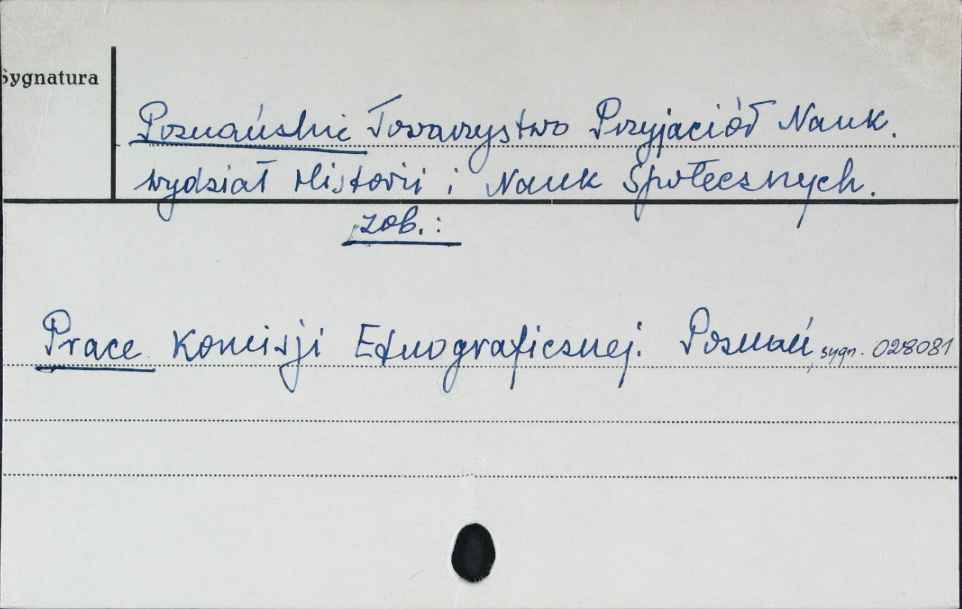 Sygnatura
Poznańskie Towarzystwo Przyjaciół Nauk.
Wydział Historii i Nauk Społecznych.
zob.:
Prace Komisji Etnograficznej. Poznań, sygn. 028081